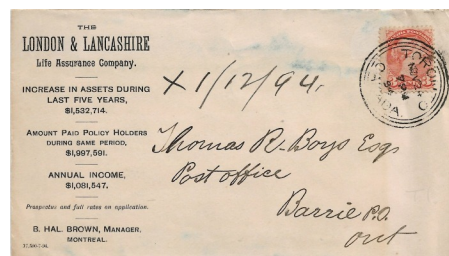 THE
LONDON & LANCASHIRE
Life Assurance Company.
INCREASE IN ASSETS DURING
LAST FIVE YEARS,
$1,532,714.
AMOUNT PAID POLICY HOLDERS
DURING SAME PERIOD,
$1,997,591.
ANNUAL INCOME,
$1,081,547.
Prospectus and full rates on application.
B. HAL. BROWN, MANAGER,
MONTREAL.
X 1/12/94.
TORONTO
CANADA
Thomas R. Boys Esq
Post office
Barrie P.O.
Ont